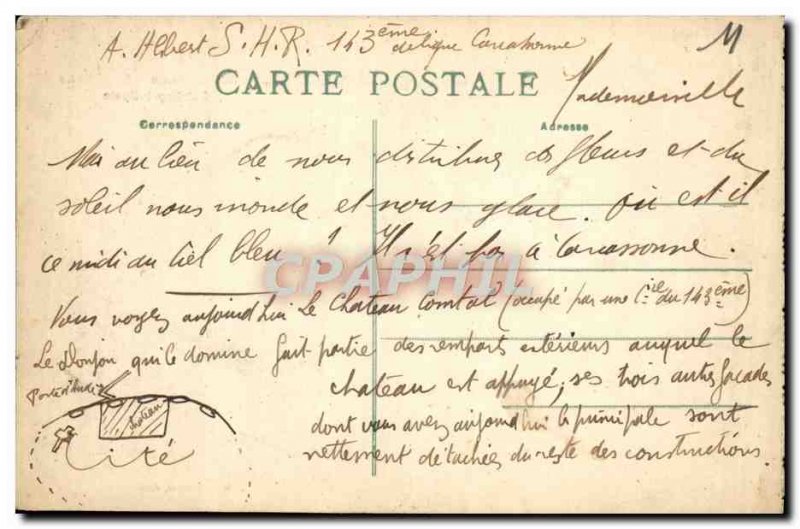 A. Albert S.H.R. 143ème de ligne Carcassonne
M
CARTE POSTALE
Mademoiselle
Correspondance
Adresse
Mai au lieu de nous distribuer des fleurs et du
soleil nous inonde et nous glace. Où est il
ce midi au Ciel bleu ? Il n'est pas à Carcassonne.
CPAPHIL
Vous voyez aujourd'hui le Chateau Comtal (occupé par une Cie du 143ème)
Le Donjon qui le domine fait partie des remparts extérieurs auquel le
Porte d'Aude
chateau est appuyé; ses trois autres façades
chateau
dont vous avez aujourd'hui la principale sont
Cité
nettement détachées du reste des constructions